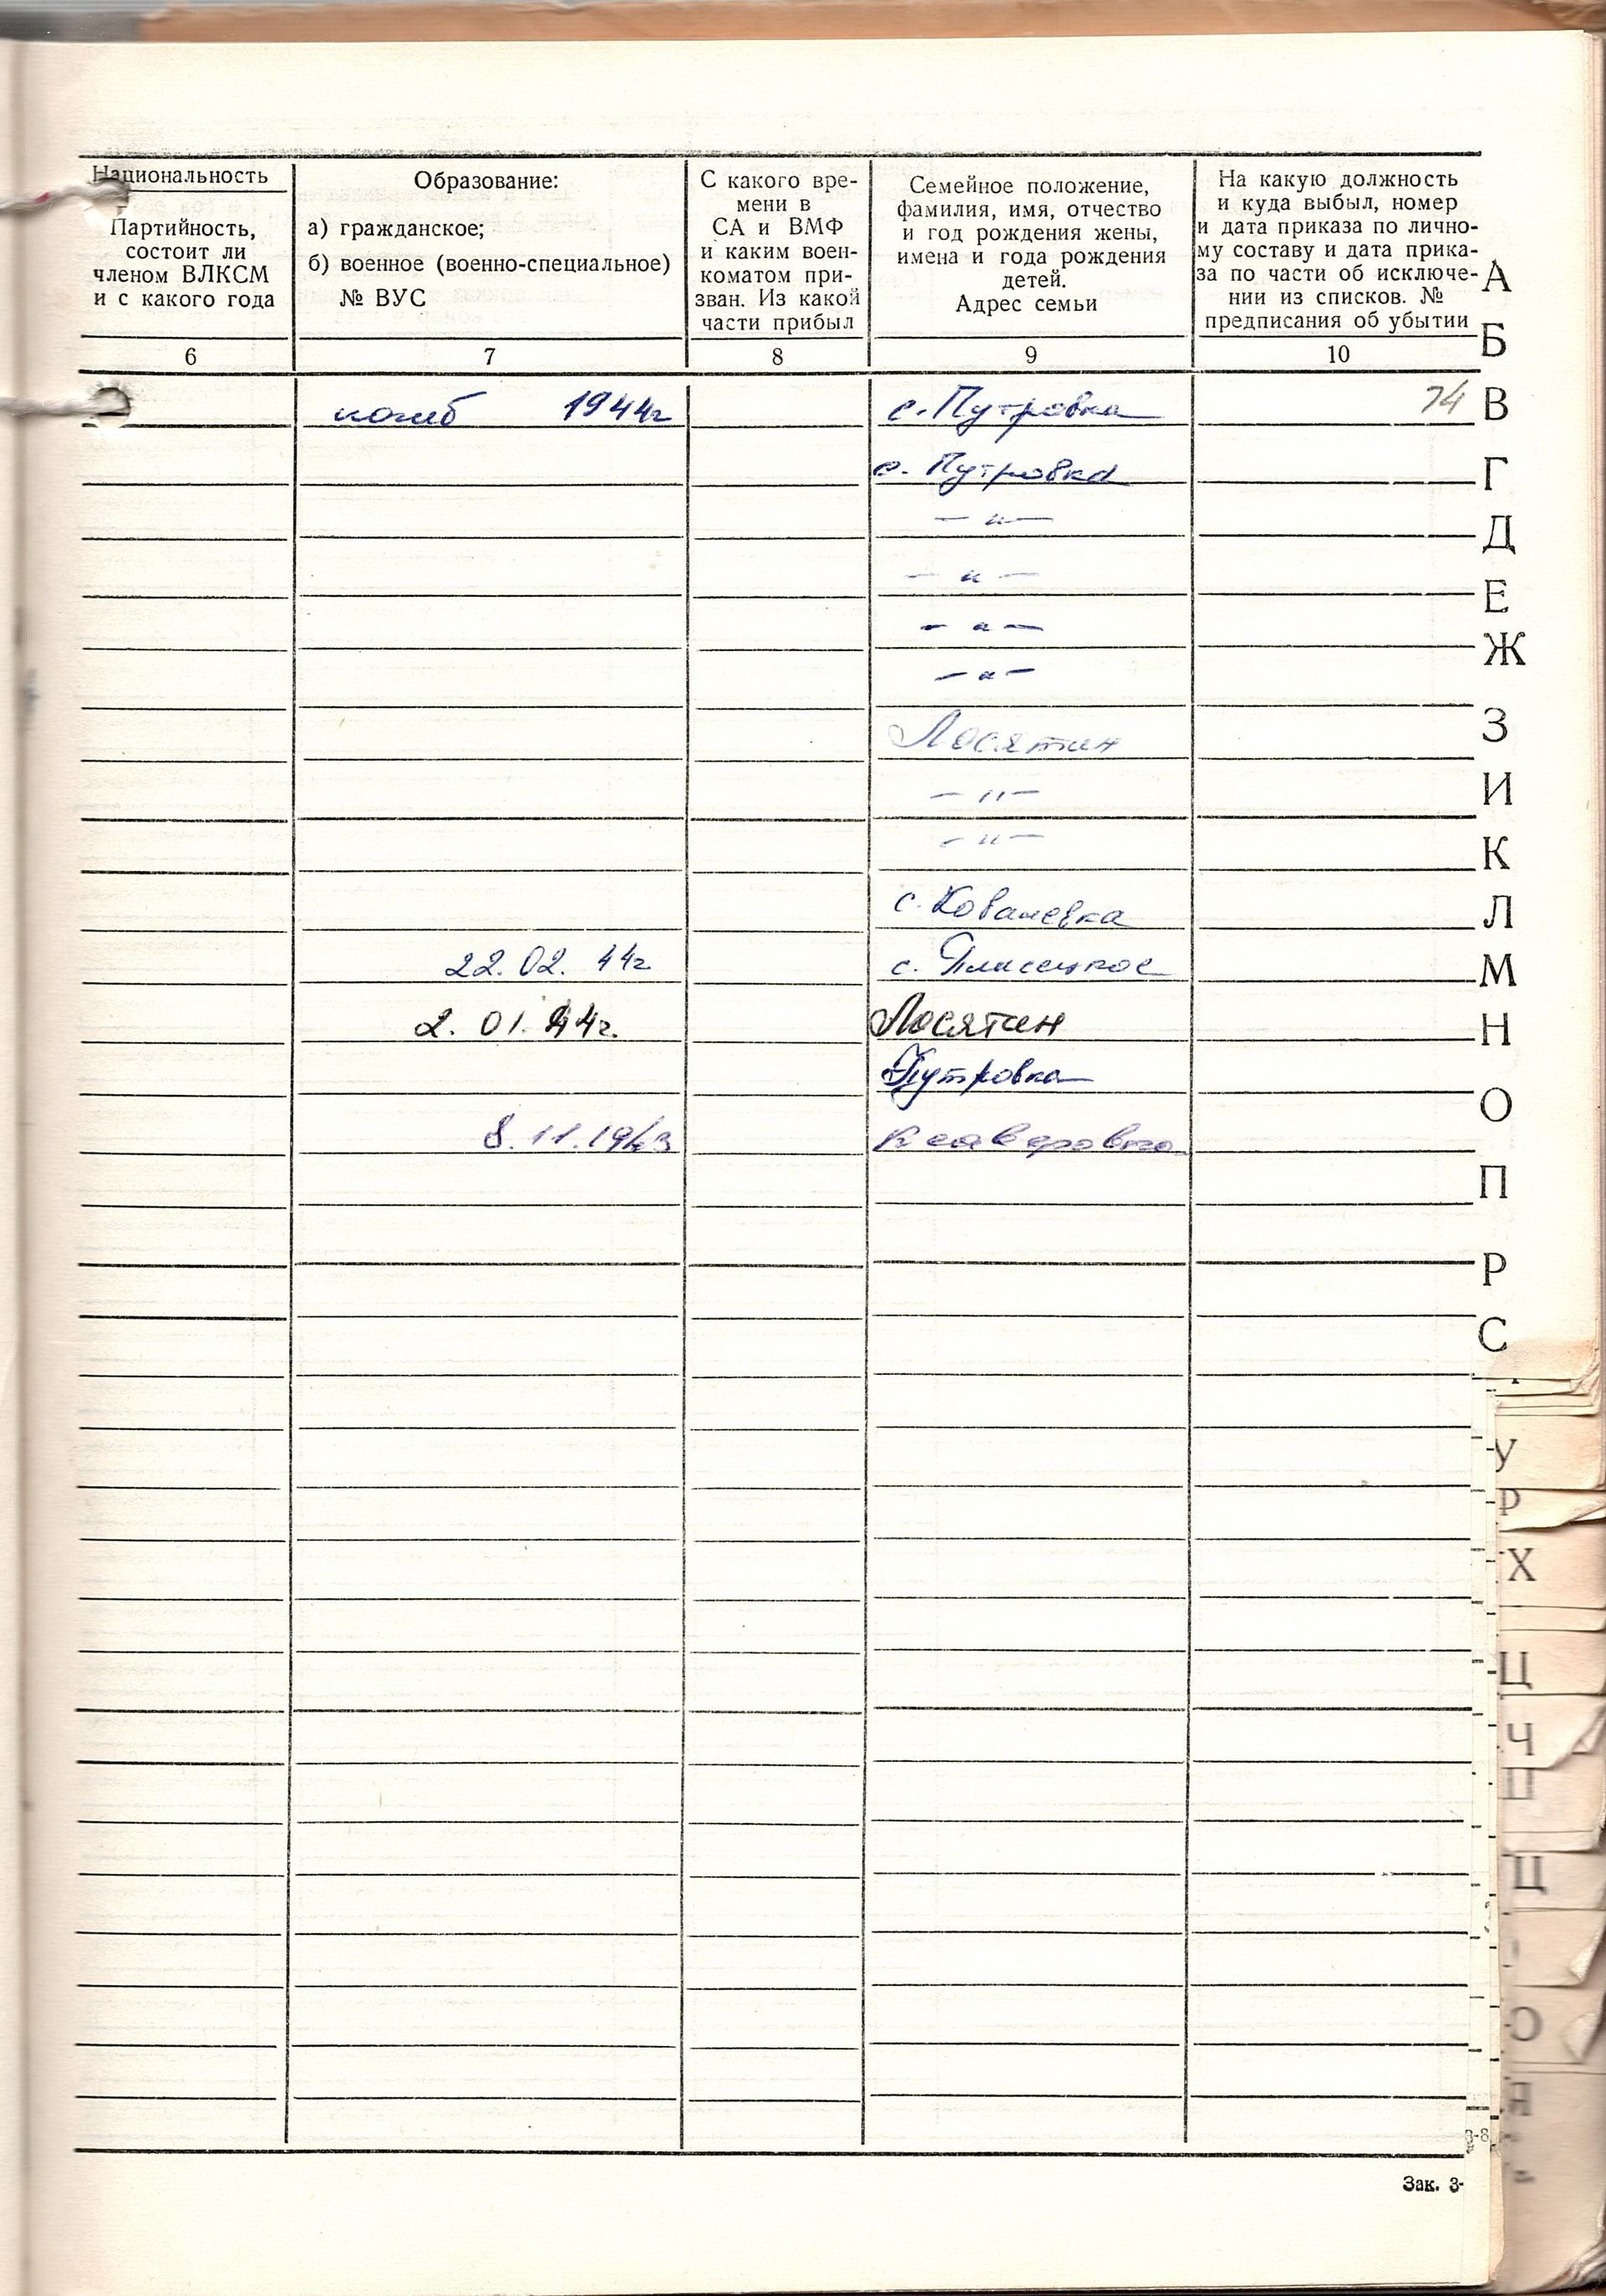 Национальность
Партийность,
состоит ли
членом ВЛКСМ
и с какого года
Образование:
а) гражданское;
б) военное (военно-специальное)
№ ВУС
С какого вре-
мени в
СА и ВМФ
и каким воен-
коматом при-
зван. Из какой
части прибыл
Семейное положение,
фамилия, имя, отчество
и год рождения жены,
имена и года рождения
детей.
Адрес семьи
На какую должность
и куда выбыл, номер
и дата приказа по лично-
му составу и дата прика-
за по части об исключе-
нии из списков. №
предписания об убытии
6 7 8 9 10
погиб 1944г с. Путровка 74
с. Путровка
— " —
— " —
— " —
— " —
Лосятин
— " —
— " —
с. Ковалевка
22.02. 44г с. Плисецкое
2. 01. 44г. Лосятин
Путровка
8. 11. 1943 Ксаверовка
А
Б
В
Г
Д
Е
Ж
З
И
К
Л
М
Н
О
П
Р
С
У
Х
Ц
Ч
Зак. 3-